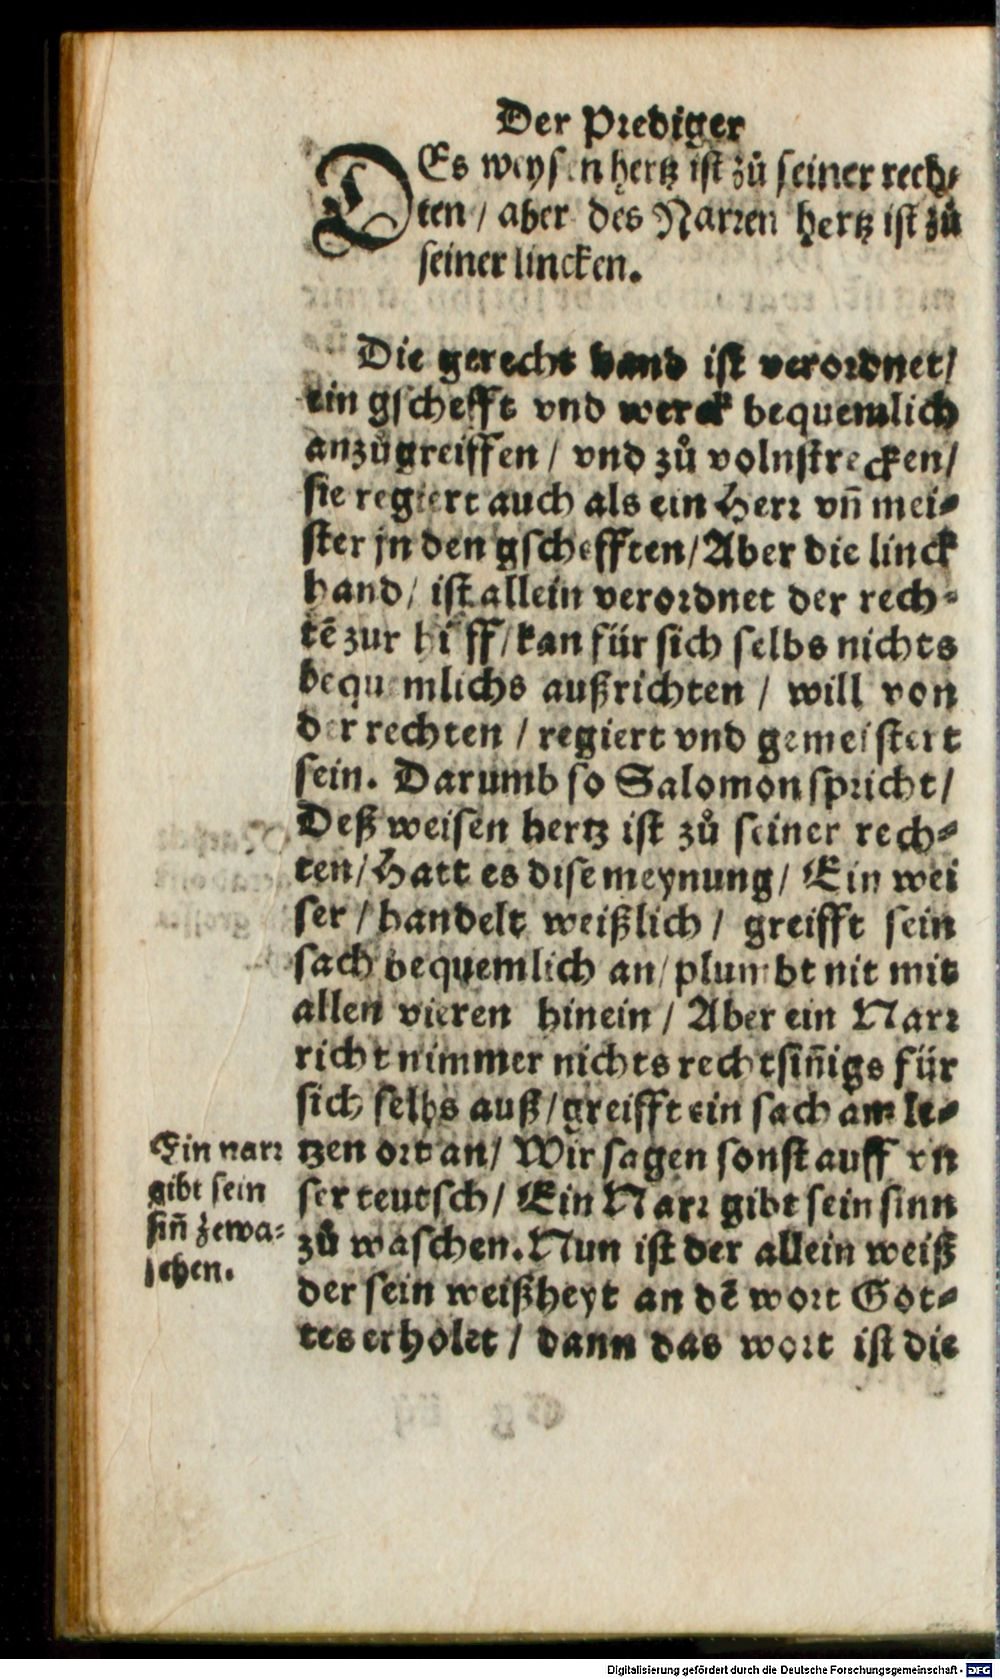 Der Prediger
DEs weysen hertz ist zů seiner rech-
ten / aber des Narren hertz ist zů
seiner lincken.
Die gerecht hand ist verordnet /
ein gschefft vnd werck bequemlich
anzůgreiffen / vnd zů volnstrecken /
sie regiert auch als ein Herr vñ mei-
ster jn den gschefften / Aber die linck
hand / ist allein verordnet der rech-
tẽ zur hilff / kan für sich selbs nichts
bequemlichs außrichten / will von
der rechten / regiert vnd gemeistert
sein. Darumb so Salomon spricht /
Deß weisen hertz ist zů seiner rech-
ten / Hatt es dise meynung / Ein wei
ser / handelt weißlich / greifft sein
sach bequemlich an / plumbt nit mit
allen vieren hinein / Aber ein Narr
richt nimmer nichts rechtsiñigs für
sich selbs auß / greifft ein sach am le-
tzen ort an / Wir sagen sonst auff vn
ser teutsch / Ein Narr gibt sein sinn
zů waschen. Nun ist der allein weiß
der sein weißheyt an dẽ wort Got-
tes erholet / dann das wort ist die
Ein narr
gibt sein
siñ zewa-
schen.
Digitalisierung gefördert durch die Deutsche Forschungsgemeinschaft - DFG